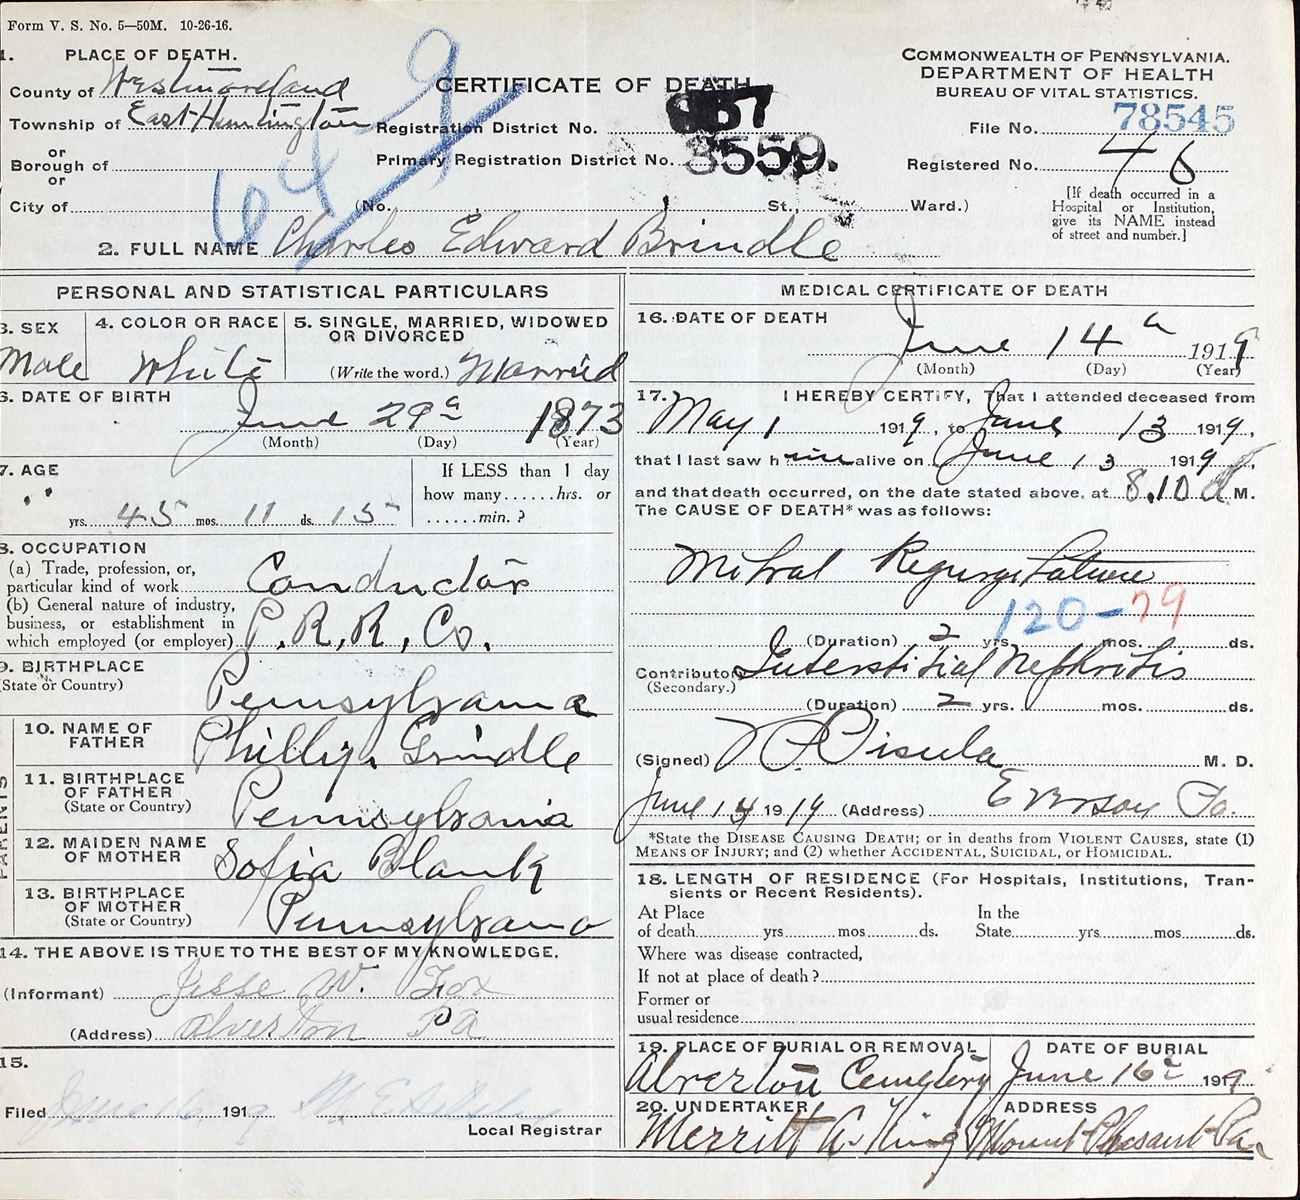 Form V. S. No. 5—50M. 10-26-16.
1. PLACE OF DEATH.
County of Westmoreland
Township of East Huntington
or
Borough of
or
City of
64 9
CERTIFICATE OF DEATH
Registration District No. 857
Primary Registration District No. 3559.
(No. , St., Ward.)
COMMONWEALTH OF PENNSYLVANIA.
DEPARTMENT OF HEALTH
BUREAU OF VITAL STATISTICS.
File No. 78545
Registered No. 46
[If death occurred in a
Hospital or Institution,
give its NAME instead
of street and number.]
2. FULL NAME Charles Edward Brindle
PERSONAL AND STATISTICAL PARTICULARS
3. SEX
Male
4. COLOR OR RACE
White
5. SINGLE, MARRIED, WIDOWED
OR DIVORCED
(Write the word.) Married
6. DATE OF BIRTH
June 29 1873
(Month) (Day) (Year)
7. AGE
yrs. 45 mos. 11 ds. 15
If LESS than 1 day
how many......hrs. or
......min. ?
8. OCCUPATION
(a) Trade, profession, or,
particular kind of work Conductor
(b) General nature of industry,
business, or establishment in
which employed (or employer) P.R.R. Co.
9. BIRTHPLACE
(State or Country)
Pennsylvania
PARENTS
10. NAME OF
FATHER Phillip Grindle
11. BIRTHPLACE
OF FATHER
(State or Country) Pennsylvania
12. MAIDEN NAME
OF MOTHER Sofia Blank
13. BIRTHPLACE
OF MOTHER
(State or Country) Pennsylvania
14. THE ABOVE IS TRUE TO THE BEST OF MY KNOWLEDGE.
(Informant) Jesse W. Fox
(Address) Alverton Pa
15.
Filed June 16, 1919
Local Registrar
MEDICAL CERTIFICATE OF DEATH
16. DATE OF DEATH
June 14 1919
(Month) (Day) (Year)
17. I HEREBY CERTIFY, That I attended deceased from
May 1 1919, to June 13 1919,
that I last saw him alive on June 13 1919,
and that death occurred, on the date stated above, at 8.10 a M.
The CAUSE OF DEATH* was as follows:
Mitral Regurgitation
120-79
(Duration) 2 yrs. mos. ds.
Contributory Interstitial Nephritis
(Secondary.)
(Duration) 2 yrs. mos. ds.
(Signed) M. D.
June 14 1919 (Address) Everson Pa.
*State the DISEASE CAUSING DEATH; or in deaths from VIOLENT CAUSES, state (1)
MEANS OF INJURY; and (2) whether ACCIDENTAL, SUICIDAL, or HOMICIDAL.
18. LENGTH OF RESIDENCE (For Hospitals, Institutions, Tran-
sients or Recent Residents).
At Place In the
of death yrs mos. ds. State yrs mos. ds.
Where was disease contracted,
If not at place of death?
Former or
usual residence
19. PLACE OF BURIAL OR REMOVAL
Alverton Cemetery
DATE OF BURIAL
June 16 1919
20. UNDERTAKER
Merritt A. King
ADDRESS
Mount Pleasant Pa.